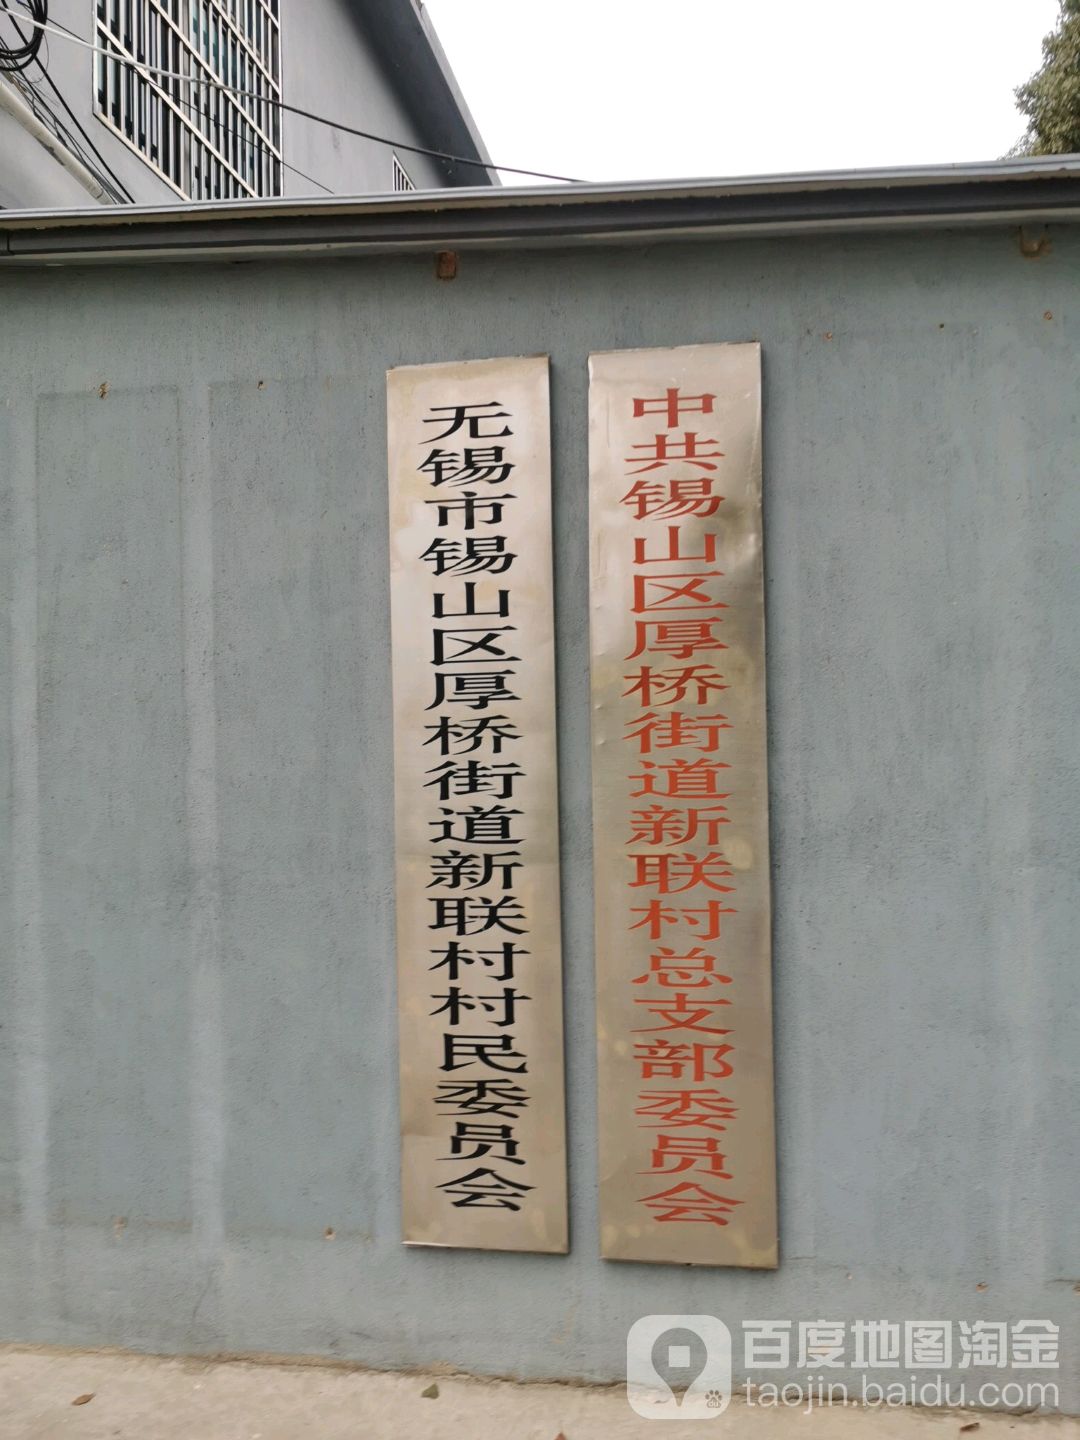 无锡市锡山区厚桥街道新联村村民委员会
中共锡山区厚桥街道新联村总支部委员会
百度地图淘金
taojin.baidu.com